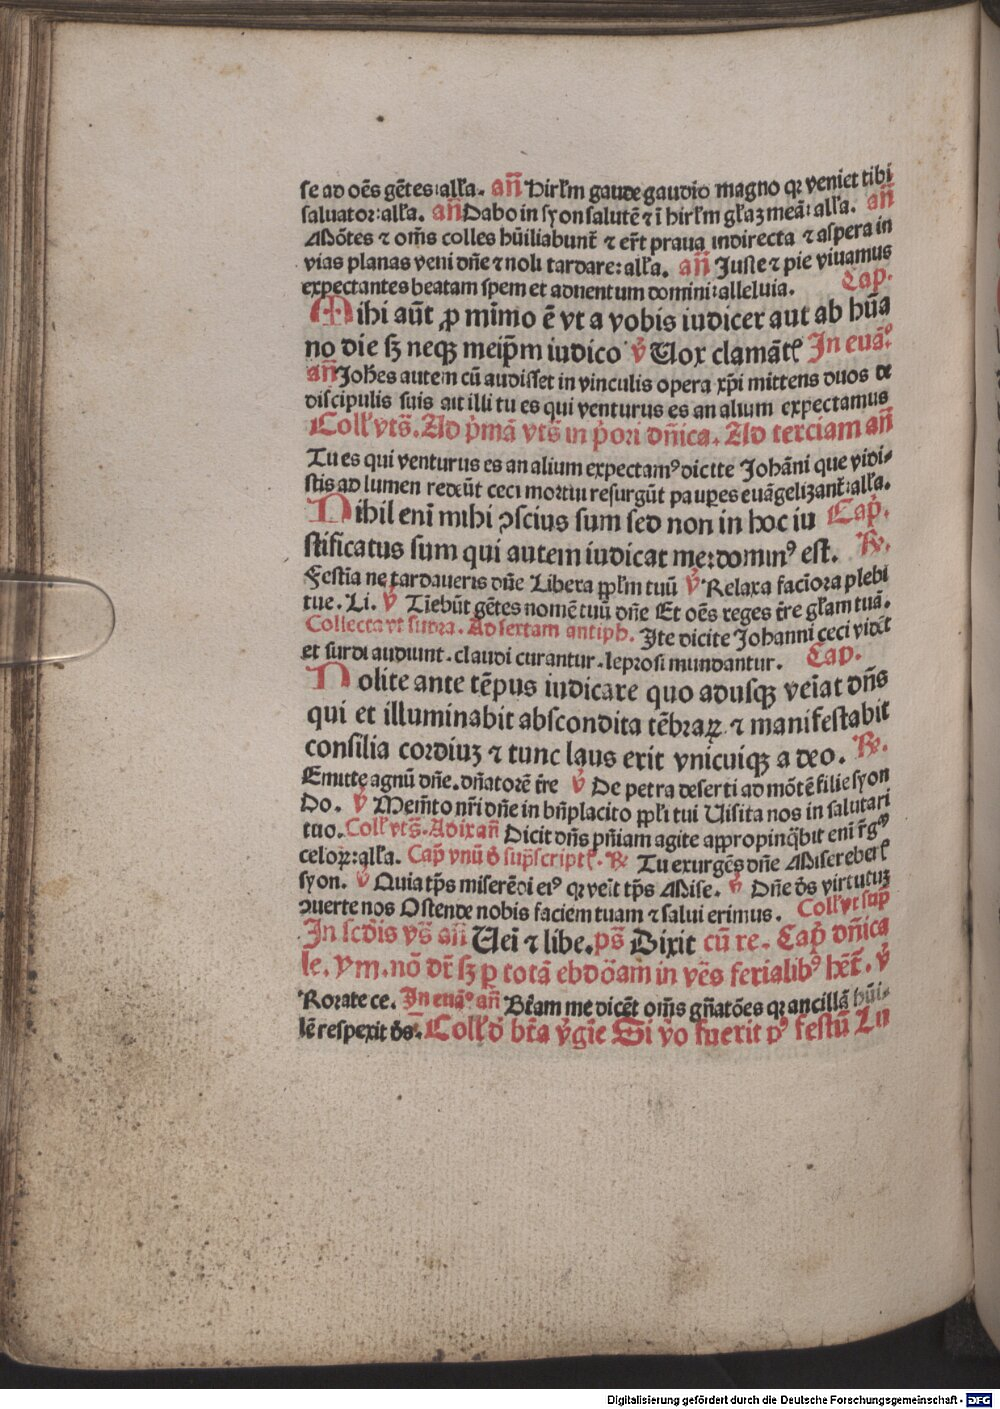 se ad oēs gētes:all'a. añ Hirl'm gaude gaudio magno qr veniet tibi
saluator:all'a. añ Dabo in syon salutē ⁊ ī hirl'm gl'aꝫ meā:all'a. añ
Mōtes ⁊ om̄s colles hūiliabunt̄ ⁊ er̄t praua indirecta ⁊ aspera in
vias planas veni dn̄e ⁊ noli tardare:all'a. añ Juste ⁊ pie viuamus
expectantes beatam spem et aduentum domini:alleluia. Cap.
Mihi aūt ꝓ mīmo ē vt a vobis iudicer aut ab hūa
no die sꝫ neqꝫ meip̄m iudico v̊ Vox clamāt{ꝭ} In euā.
añ Joh̄es autem cū audisset in vinculis opera xp̄i mittens duos de
discipulis suis ait illi tu es qui venturus es an alium expectamus
Coll' vts̄. Ad p̄mā vts̄ in p̄ori dn̄ica. Ad terciam añ
Tu es qui venturus es an alium expectam⁹ dicite Johāni que vidi-
stis ad lumen redeūt ceci mortui resurgūt paup̱es euāgelizant̄:all'a.
Nihil enī mihi ꝯscius sum sed non in hoc iu Cap̄.
stificatus sum qui autem iudicat me:domin⁹ est. ℞.
Festīa ne tardaueris dn̄e Libera ppl'm tuū v̊ Relaxa facīora plebi
tue. Li. v̊ Tīebūt gētes nomē tuū dn̄e Et oēs reges t̄re gl'am tuā.
Collecta vt supra. Ad sextam antiph. Ite dicite Johanni ceci vidēt
et surdi audiunt. claudi curantur. leprosi mundantur. Cap.
Nolite ante tēpus iudicare quo adusqꝫ veīat dn̄s
qui et illuminabit abscondita tēbraꝝ ⁊ manifestabit
consilia cordiuꝫ ⁊ tunc laus erit vnicuiqꝫ a deo. ℞.
Emitte agnū dn̄e. dn̄atorē t̄re v̊ De petra deserti ad mōtē filie syon
Do. v̊ Mem̄to nr̄i dn̄e in bn̄placito ppl'i tui Visita nos in salutari
tuo. Coll' vts̄. Ad ix añ Dicit dn̄s pn̄iam agite appropinq̄bit enī r̄g⁹
celoꝝ:all'a. Cap̄ vnū d̄ sup̄script{ꝭ}. ℞ Tu exurgēs dn̄e Misereber{ꝭ}
syon. v̊ Quia tp̄s miserēdi ei⁹ qr veīt tp̄s Mise. v̊ Dn̄e d̄s virtutuꝫ
ꝯuerte nos Ostende nobis faciem tuam ⁊ salui erimus. Coll' vt sup̄
In scd̄is vs̄ añ Veī ⁊ libe. ps̄ Dixit cū re. Cap̄ dn̄ica
le. ym. nō dr̄ sꝫ p̱ totā ebdōam in vēs ferialib⁹ hēt̄. v̊
Rorate ce. In euā⁹ añ Bt̄am me dicēt om̄s gn̄atōes qr ancillā hūi-
lē respexit d̄s. Coll' d̄ bt̄a v̄gīe Si v̊o fuerit p⁹ festū Lu
Digitalisierung gefördert durch die Deutsche Forschungsgemeinschaft - DFG